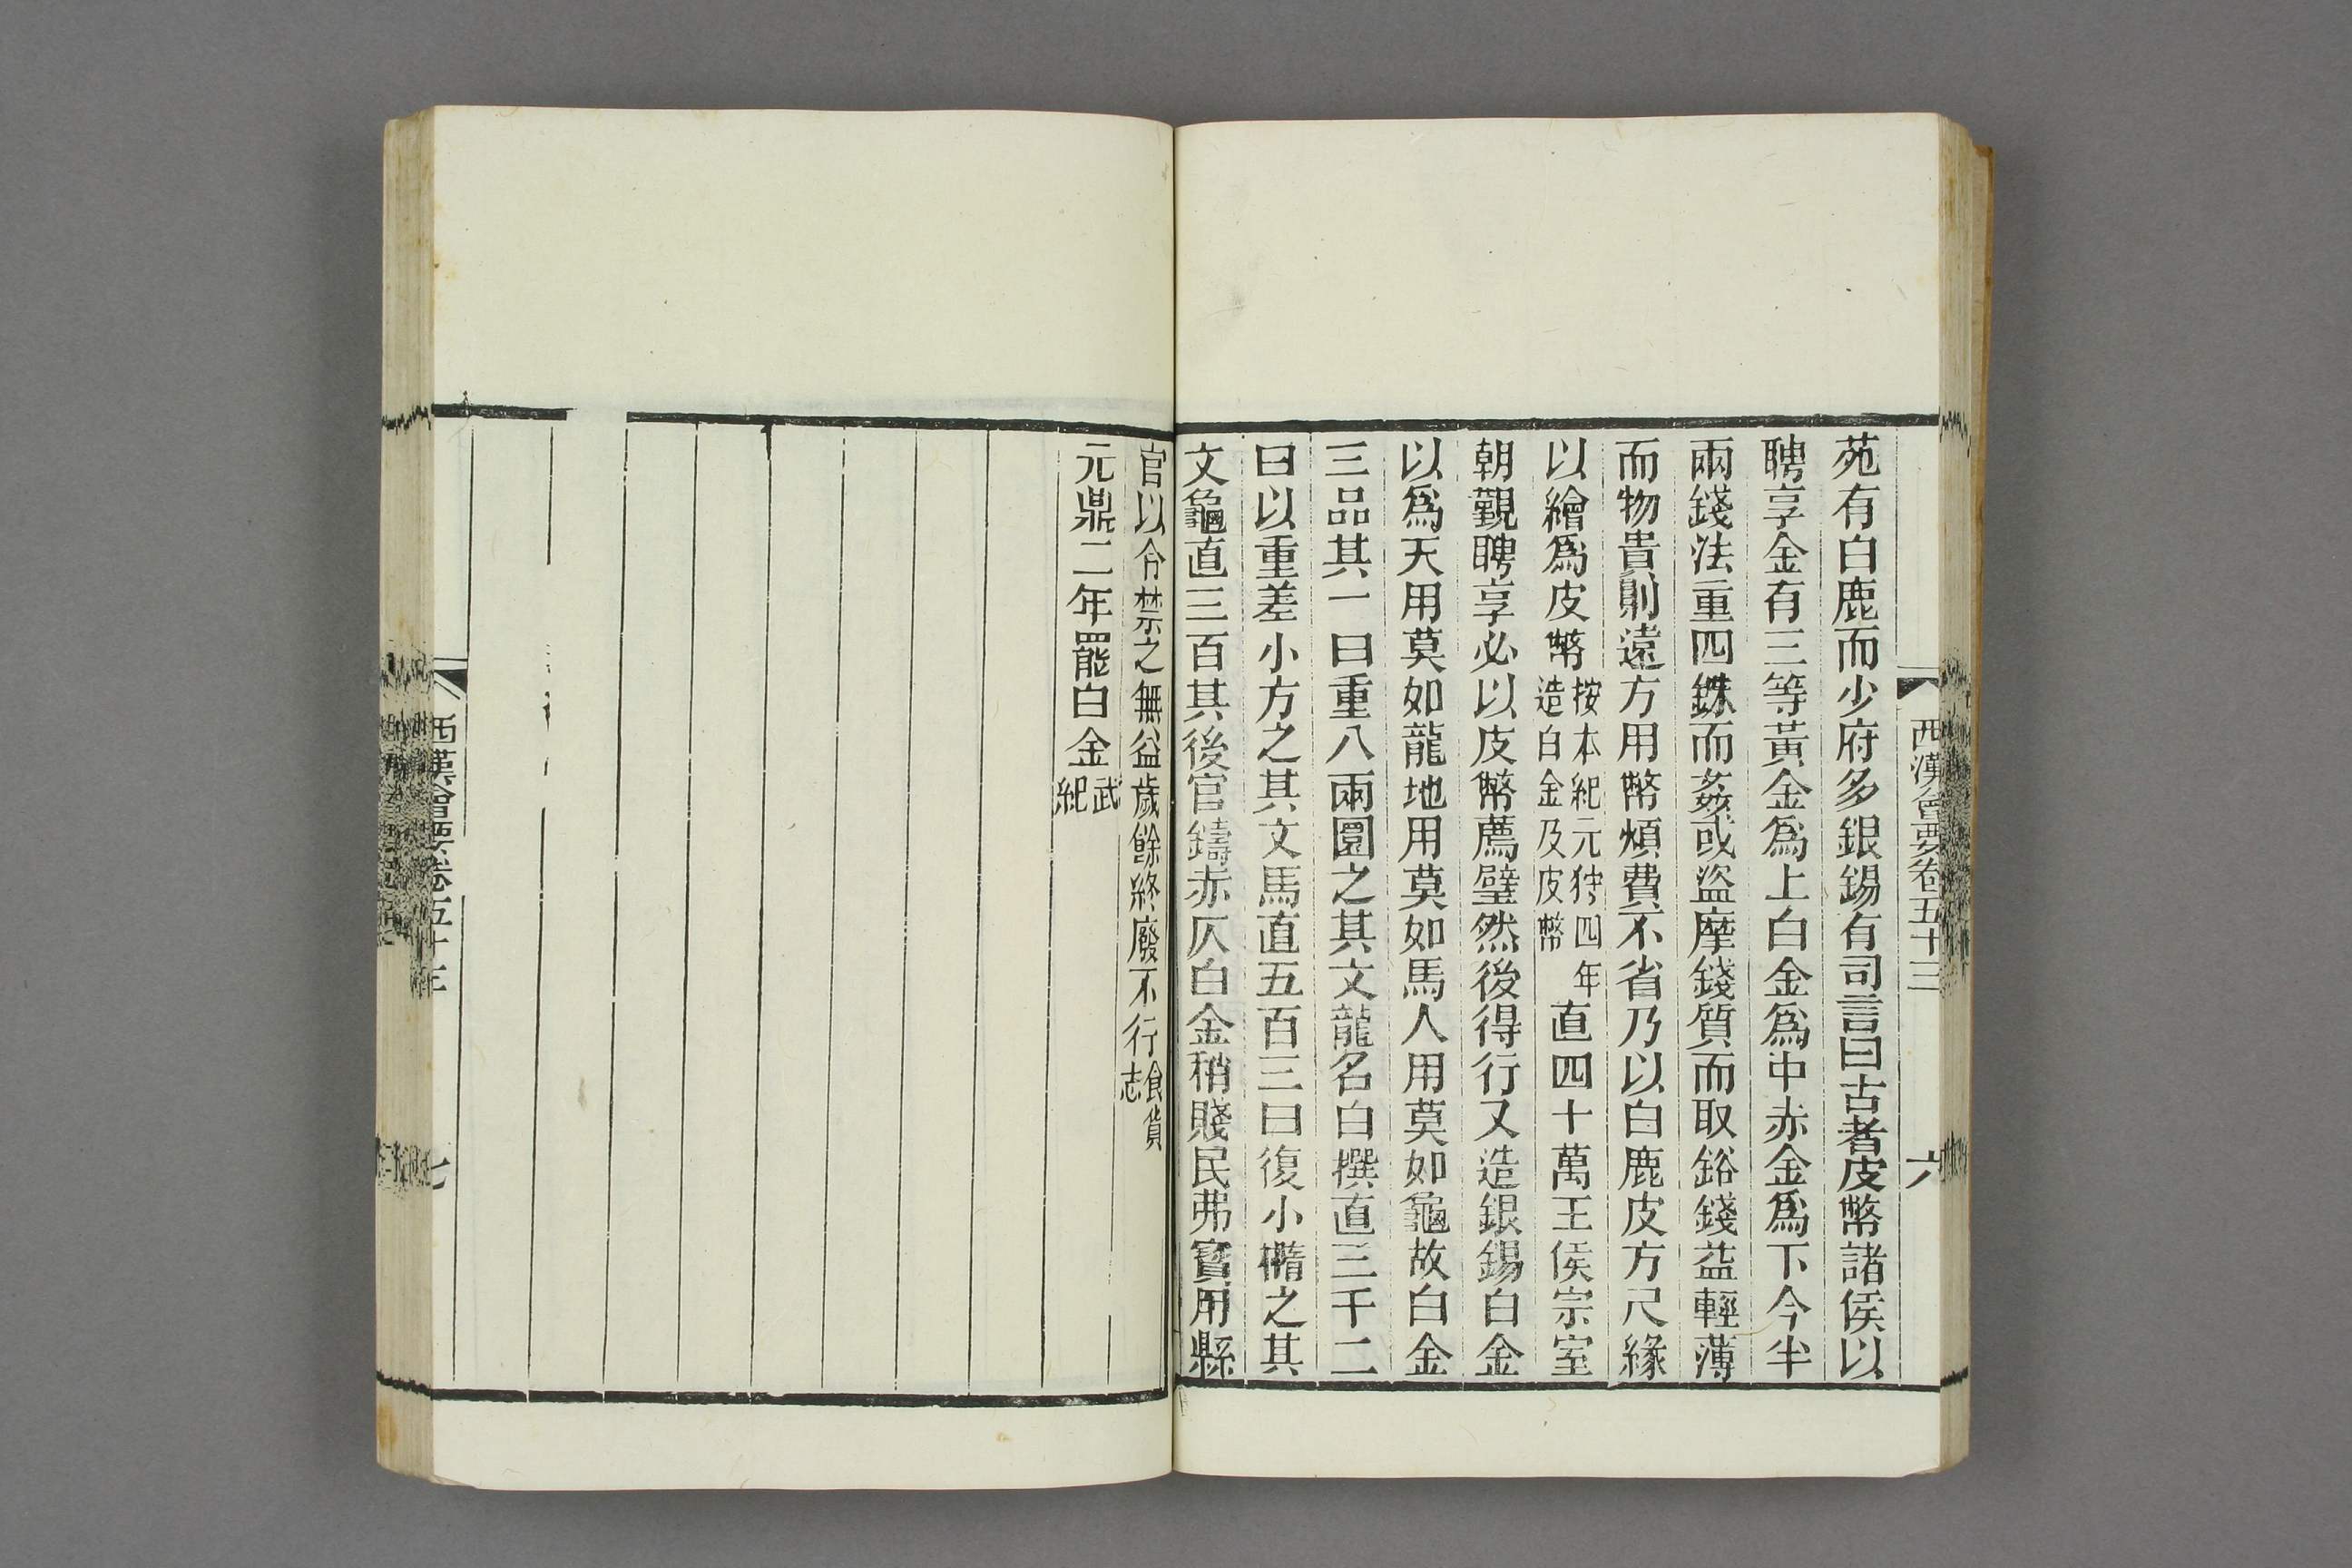 西漢會要卷五十三
六
苑有白鹿而少府多銀錫有司言曰古者皮幣諸侯以
聘享金有三等黃金爲上白金爲中赤金爲下今半
兩錢法重四銖而姦或盜摩錢質而取鋊錢益輕薄
而物貴則遠方用幣煩費不省乃以白鹿皮方尺緣
以繪爲皮幣
按本紀元狩四年
造白金及皮幣
直四十萬王侯宗室
朝覲聘享必以皮幣薦璧然後得行又造銀錫白金
以爲天用莫如龍地用莫如馬人用莫如龜故白金
三品其一曰重八兩圜之其文龍名白撰直三千二
曰以重差小方之其文馬直五百三曰復小橢之其
文龜直三百其後官鑄赤仄白金稍賤民弗寶用縣
官以令禁之無益歲餘終廢不行
食貨
志
元鼎二年罷白金
武
紀
西漢會要卷五十三
七